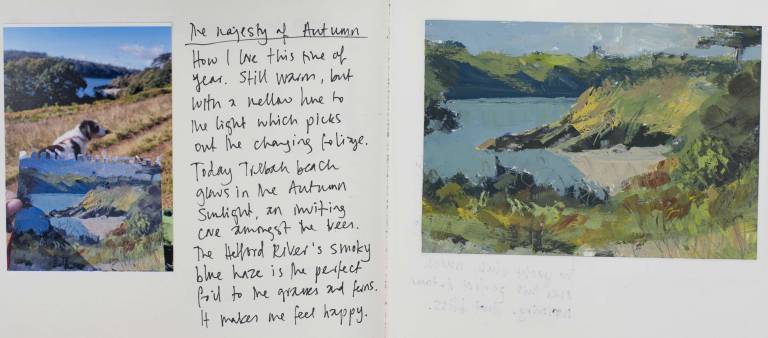 The majesty of Autumn
How I love this time of
year. Still warm, but
with a mellow hue to
the light which picks
out the changing foliage.
Today Trebah beach
glows in the Autumn
Sunlight, an inviting
cove amongst the trees.
The Helford River's smoky
blue haze is the perfect
foil to the grasses and ferns.
It makes me feel happy.